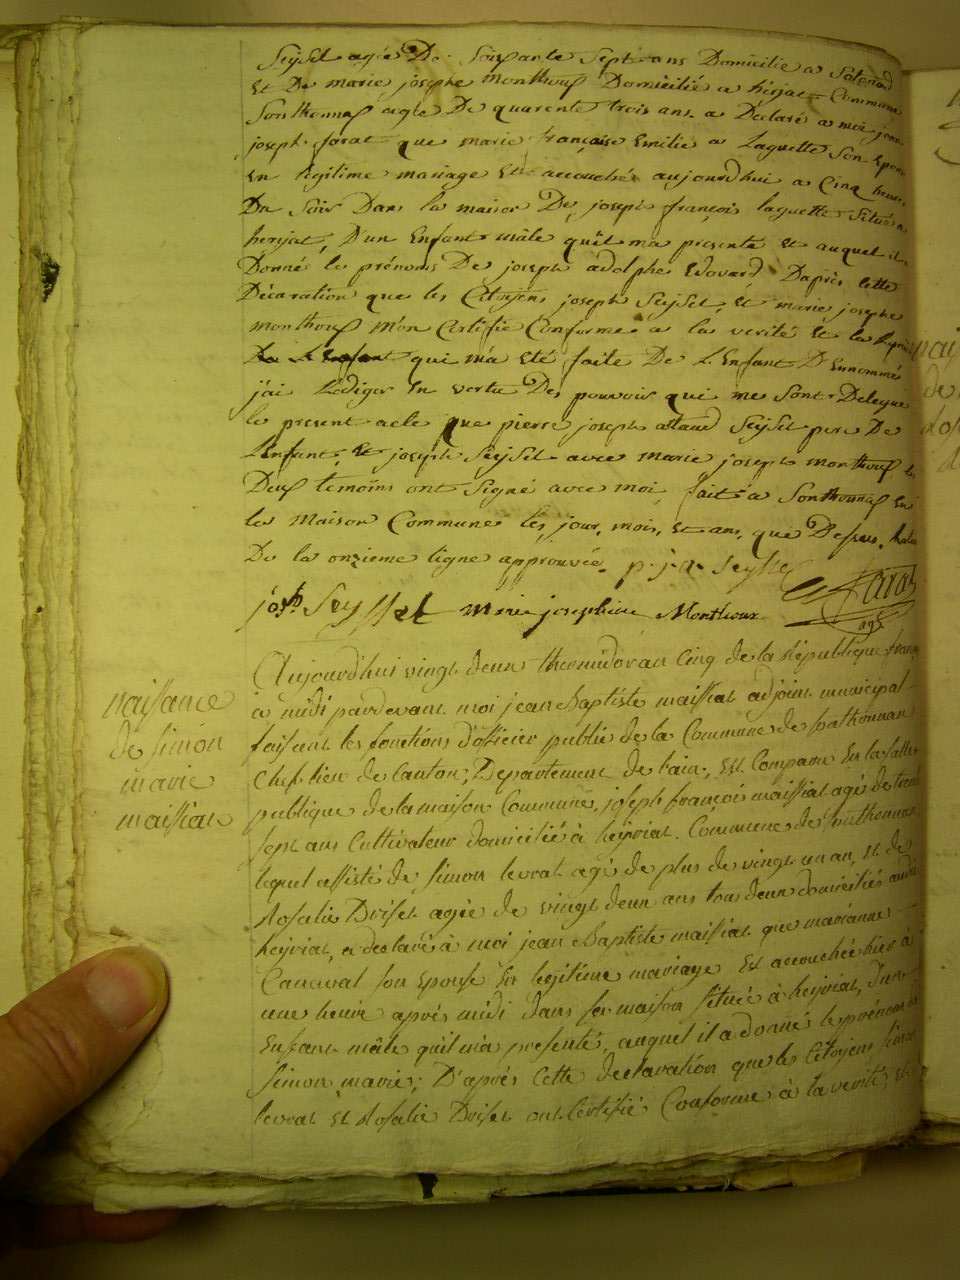 Seÿsel agée De Soixante Sept ans Domicilié a
Et De marie josephe monthoux Domiciliée a heÿriat Commune
Sonthonnax agée De quarente trois ans a Declaré a moi jean
joseph farat que marie françoise Emilie a Laguette Son Epouse
En legitime mariage Est accouchée aujourdhui a Cinq heures
Du Soir Dans la maison De joseph françois laguette Située a
heriat, D'un Enfant mâle qu'il ma presenté Et auquel il a
Donné les prénoms De joseph adolphe Edouard, Daprès cette
Déclaration que les Citoÿens joseph Seÿsel, Et marie josephe
monthoux m'on Certifié Conforme a la verité Et la
qui m'a Eté faite De L'Enfant Dénnommé
j'ai Rédiger En vertu Des pouvoir qui me Sont Delegué
le present acte que pierre joseph Seÿsel pere De
L'enfant, Et joseph Seÿsel avec marie joseph monthoux les
Deux temoins ont Signé avec moi, fait a Sonthonnax En
la Maison Commune les jour, mois, Et ans, que Dessus,
De la onzieme ligne approuvée. p. j. a. Seyssel
josph Seyssel marie josephine Monthoux farat
agt
Aujourd'hui vingt deux thermidor an Cinq de la République française
à midi pardevant moi jean Baptiste maissiat adjoint municipal
faisant les fonctions d'officier public de la Commune de Sonthonnax
Chef-lieu de Canton, Departement de l'ain, Est Comparu En la Salle
publique de la maison Commune, joseph françois maissiat agé de trente
sept ans Cultivateur domicilié à heÿriat. Commune de Sonthonnax
lequel assisté de Simon levrat agé de plus de vingt un an, Et de
Rosalie Druset agée de vingt deux ans tous deux domiciliés audit
heÿriat, a declaré à moi jean Baptiste maissiat que marianne
Caneval son Epouse En legitime mariage Est accouchée hier à
une heure après midi dans sa maison située à heÿriat, d'un
Enfant mâle qu'il m'a presenté, auquel il a donné les prénoms de
Simon marie; D'après Cette declaration que les Citoÿens Simon
levrat Et Rosalie Druset ont Certifié Conforme à la verité, Et
naissance
de Simon
marie
maissiat